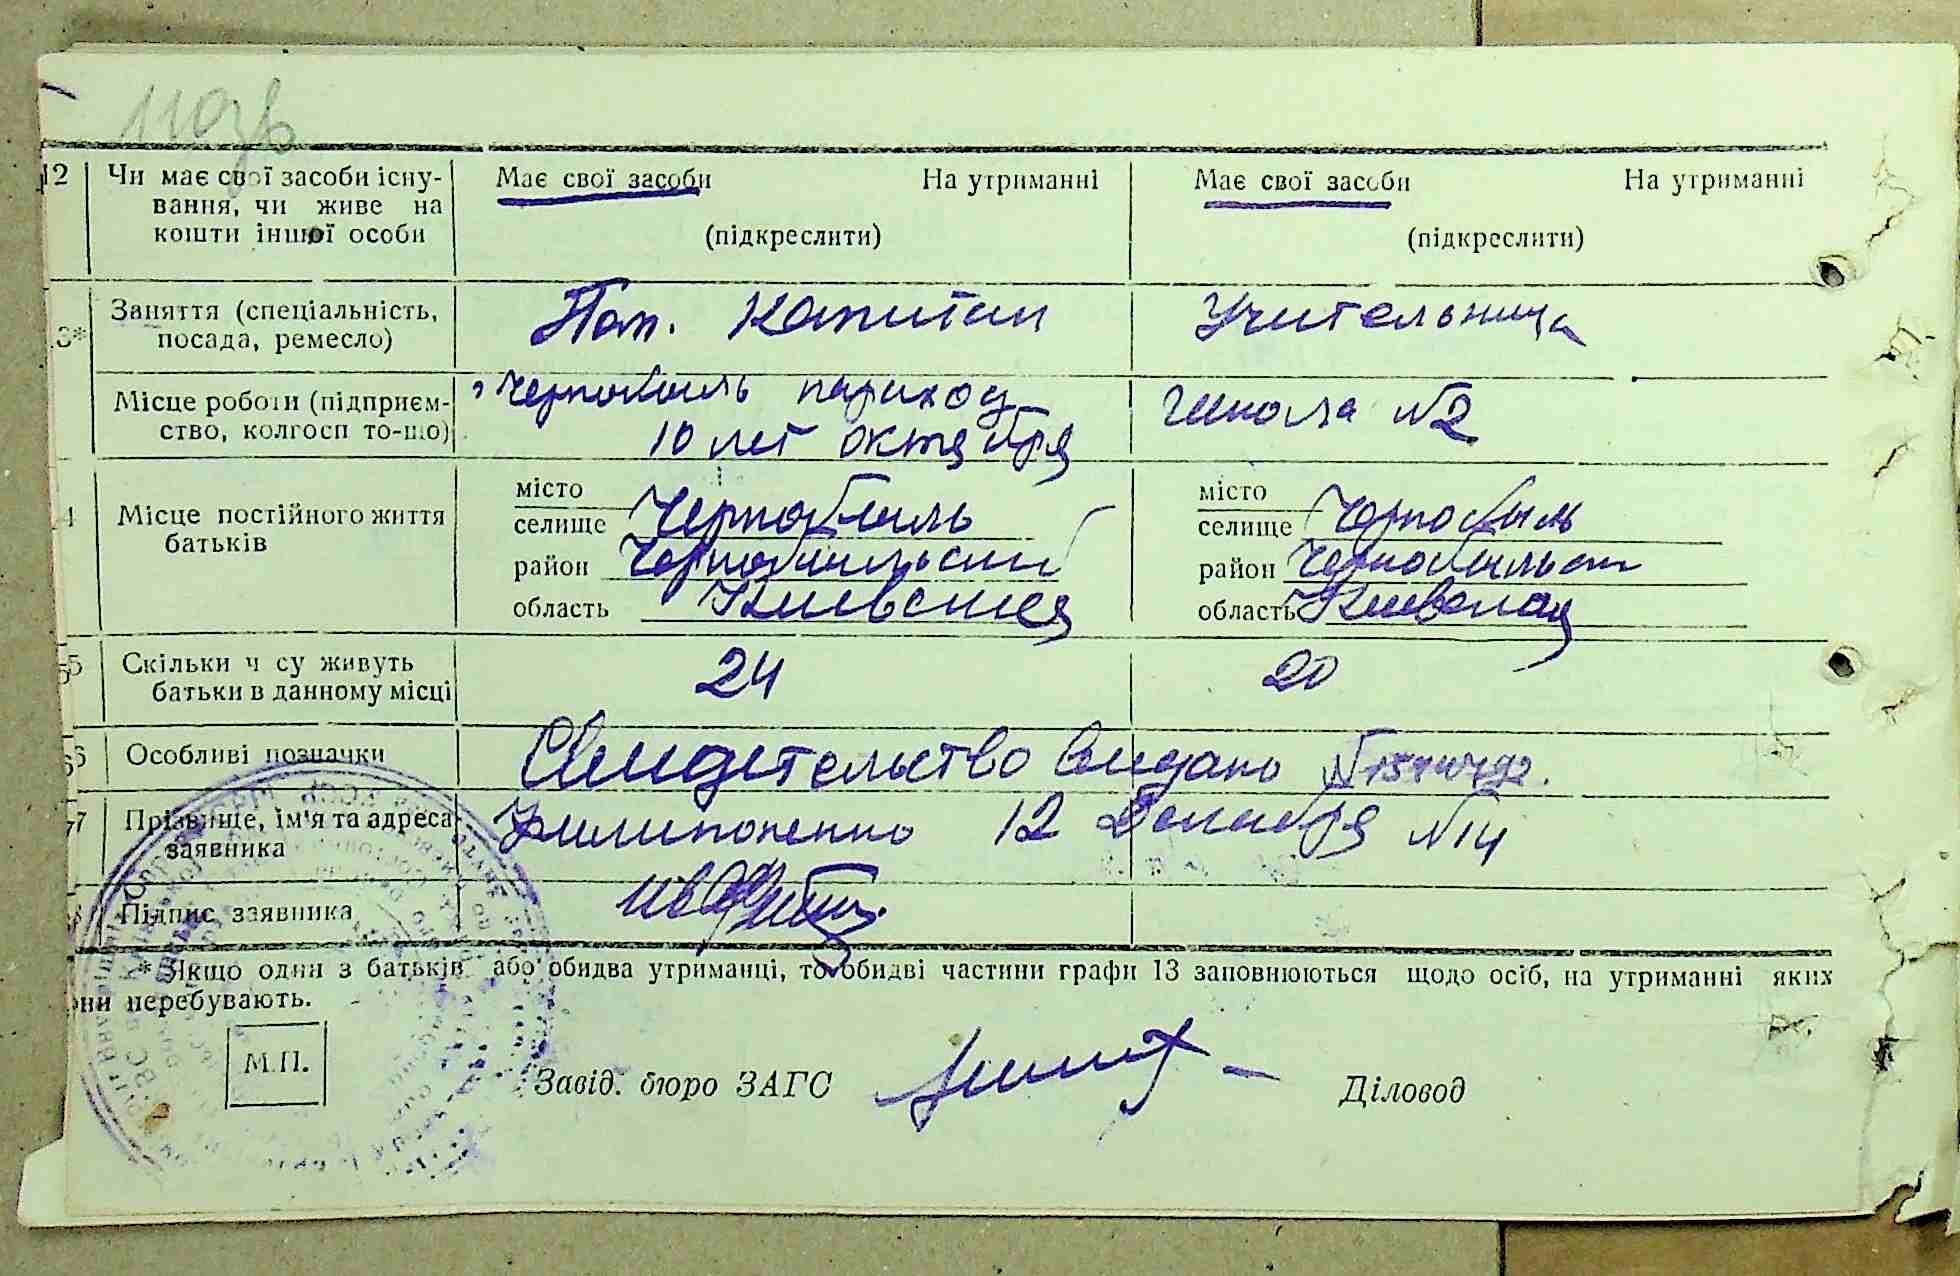 110зв
12 Чи має свої засоби існу- Має свої засоби На утриманні Має свої засоби На утриманні
вання, чи живе на
кошти іншої особи (підкреслити) (підкреслити)
3* Заняття (спеціальність, Пом. Капитан Учительница
посада, ремесло)
Місце роботи (підприєм- Чернобыль пароход Школа №2
ство, колгосп то-що) 10 лет октября
4 Місце постійного життя місто місто
батьків селище Чернобыль селище Чернобыль
район Чернобыльский район Чернобыльск
область Киевская область Киевская
5 Скільки ч су живуть 24 20
батьки в данному місці
6 Особливі позначки Свидетельство видано
7 Прізвище, ім'я та адреса Филипоненко 12 Декабря №14
заявника
Підпис заявника
* Якщо один з батьків або обидва утриманці, то обидві частини графи 13 заповнюються щодо осіб, на утриманні яких
они перебувають.
М.П.
Завід. бюро ЗАГС Діловод